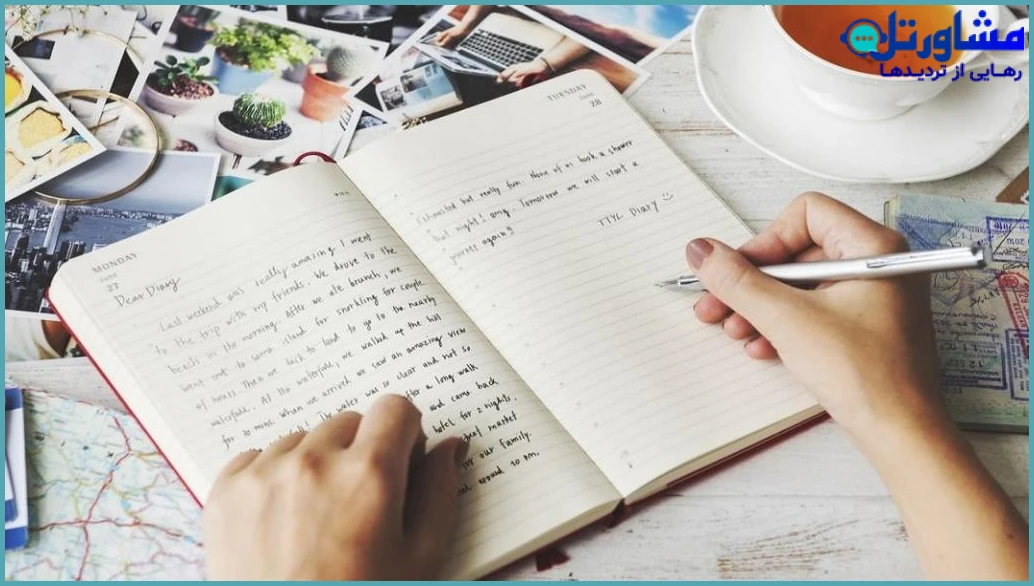 مشاورتل
رهایی از تردیدها
MONDAY
June
27
Dear Diary
Last weekend was really amazing I went
to the trip with my friends. We drove to the
beach in the morning. After we ate brunch, we
went out to some island for snorkling for couple
of hours. Then we back to land to go to the nearby
waterfall. At the waterfall, we walked up the hill
for 10 mins. When we arrived we saw an amazing view
The water was so clear and not so
after a long walk
and came back
hotel for 2 nights,
market
for our family.
and around 10 pm.
TUESDAY
June
28
Exhausted but really fun. None of us took a shower
that night! omg. Tomorrow we will start a
journey again!
TTYL Diary
12 SEP